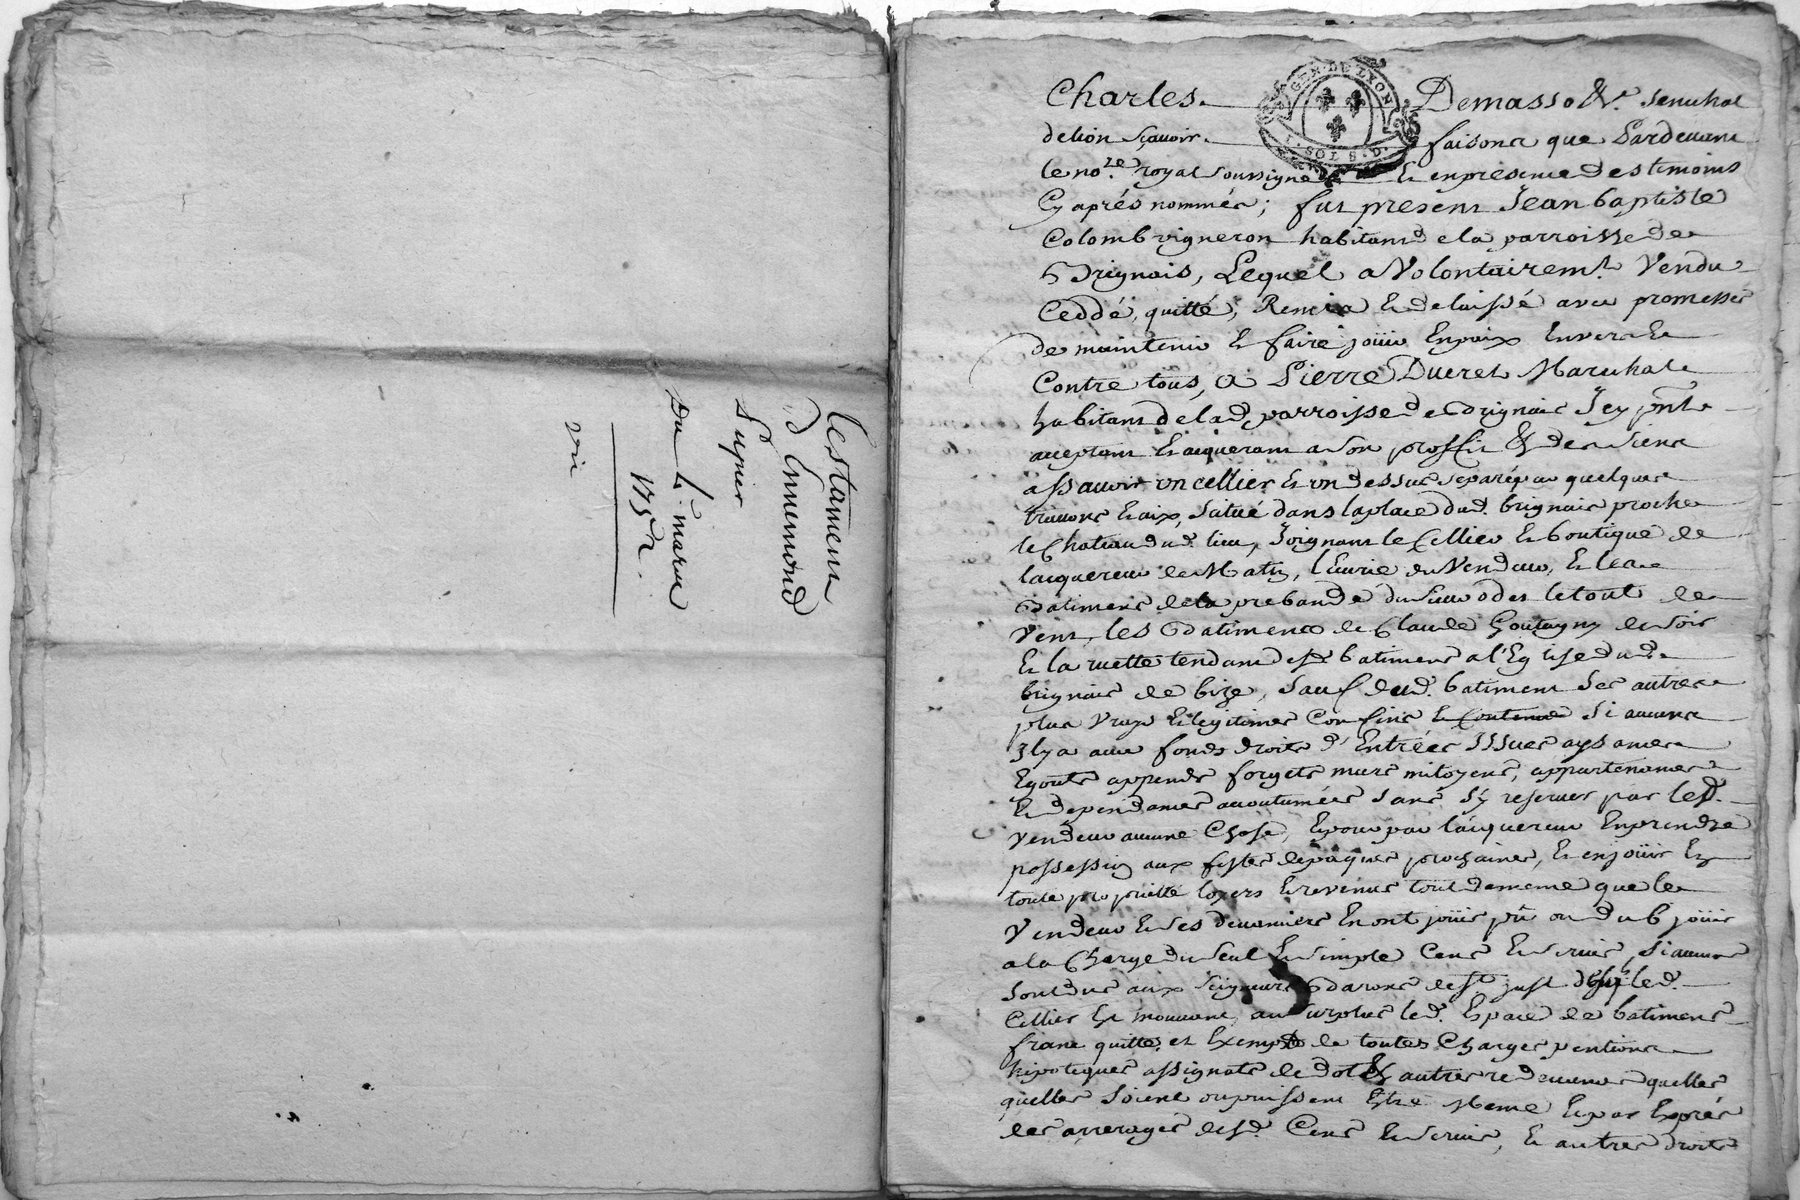 Testament
d'Ennemond
Supier
Du 4e. mars
1752.
vû
GEN. DE LYON
1. SOL 8. D.
Charles. Demasso &c. senechal
delion sçavoir. faisons que Pardevant
le no.re royal soussigné et en presence des temoins
Cy aprés nommés; fut present Jean baptiste
Colomb vigneron habitant de la parroisse de
Brignais, Lequel a Volontairemt. Vendu
Ceddé, quitté, Remis et delaissé avec promesse
de maintenir et faire joüir En paix Envers et
Contre tous, a Pierre Dueret Marechal
habitant de lad. parroisse de Brignais Icy pnt.
acceptant et acquerant a son proffit & des siens
assavoir un cellier et un dessus separé par quelques
travons et aix, situé dans la place dud. brignais proche
le Chateau dud. lieu, Joignant le Cellier et boutique de
l'acquereur de Matin, l'Ecurie du Vendeur, et les
Batiments de la prebande du sieur odes le tout de
Vent, les Batiments de Claude Goutagny de soir
et la ruette tendant desd. batiments a l'Eglise dud.
brignais de bize, sauf dud. batiment ses autres
plus vrays et legitimes Confins et Contenue si aucuns
Il y a avec fonds droits d'Entrées Issues aysances
Egouts appends forgets murs mitoyens, appartenances
et dependances accoutumées sans s'y reserver par led.
Vendeur aucune Chose, Et pour par l'acquereur En prendre
possession aux festes de pâques prochaines, et en joüir En
toute proprietté loyers et revenus tout de meme que le
Vendeur et ses devanciers En ont joüis pû ou dub joüir
a la Charge du seul et simple Cens et servis, si aucuns
sont dus aux seigneurs Barons de st. just desq. led.
Cellier est mouvant, au surplus led. Espace de batiments
franc quitte et Exempt de toutes Charges pentions
hipoteques assignats de dot & autres redevances quelles
quelles soient ou puissent Estre Meme Et par Exprés
des arrerages desd. Cens et servis, et autres droits